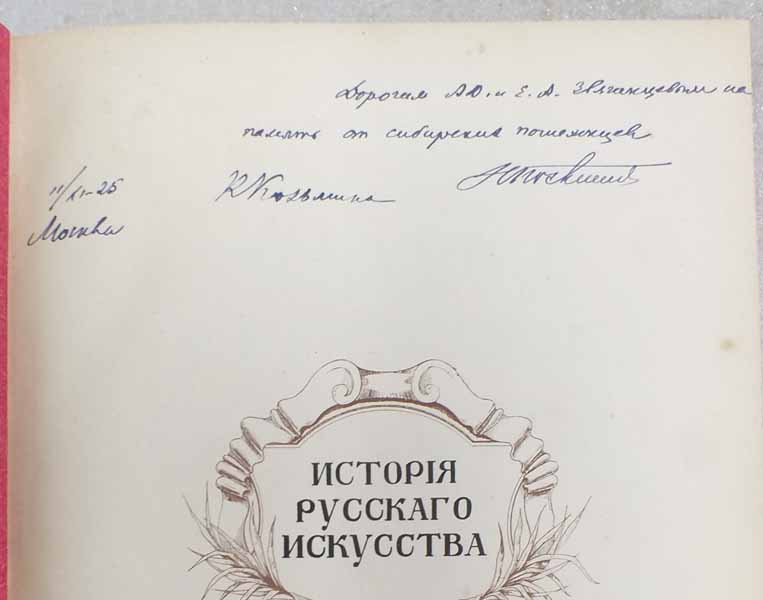 Дорогим А.О. и Е.А. Звягинцевым на
память от сибирских
11/XI-25
К Козьмина
Москва
ИСТОРІЯ
РУССКАГО
ИСКУССТВА